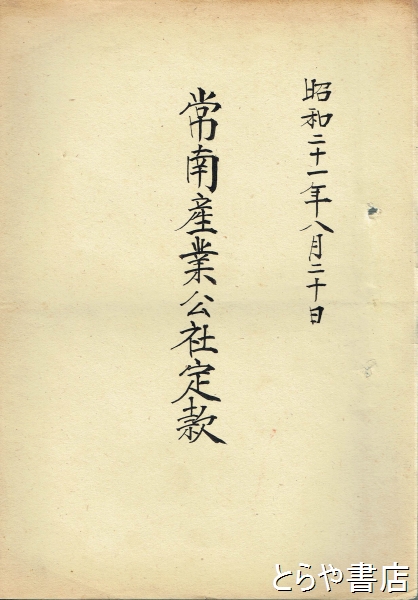 昭和二十一年八月二十日
常南産業公社定款
とらや書店